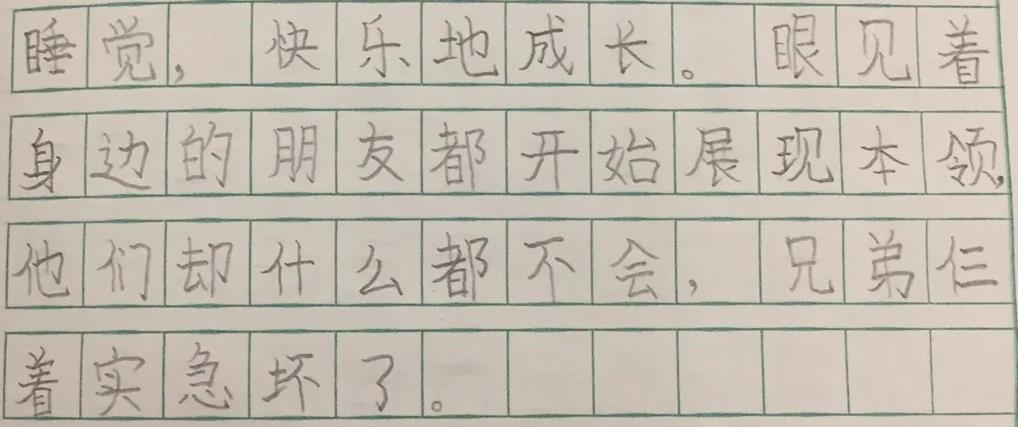 睡觉，快乐地成长。眼见着
身边的朋友都开始展现本领，
他们却什么都不会，兄弟仨
着实急坏了。